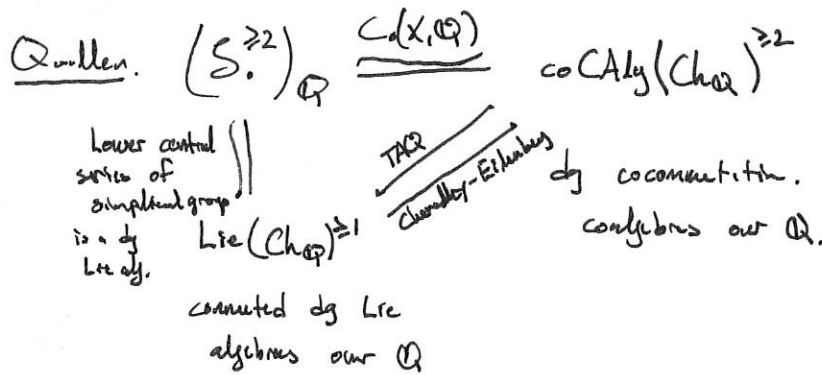 Quillen. (S.^{≥2})_Q C.(X,Q) coCAlg(Ch_Q)^{≥2}
Lower central
series of
simplicial group
is a dg
Lie alg.
TAQ
Chevalley-Eilenberg
Lie(Ch_Q)^{≥1}
dg cocommutative
coalgebras over Q.
connected dg Lie
algebras over Q